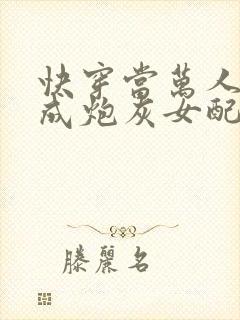 快穿當萬人
成炮灰女配
滕麗名